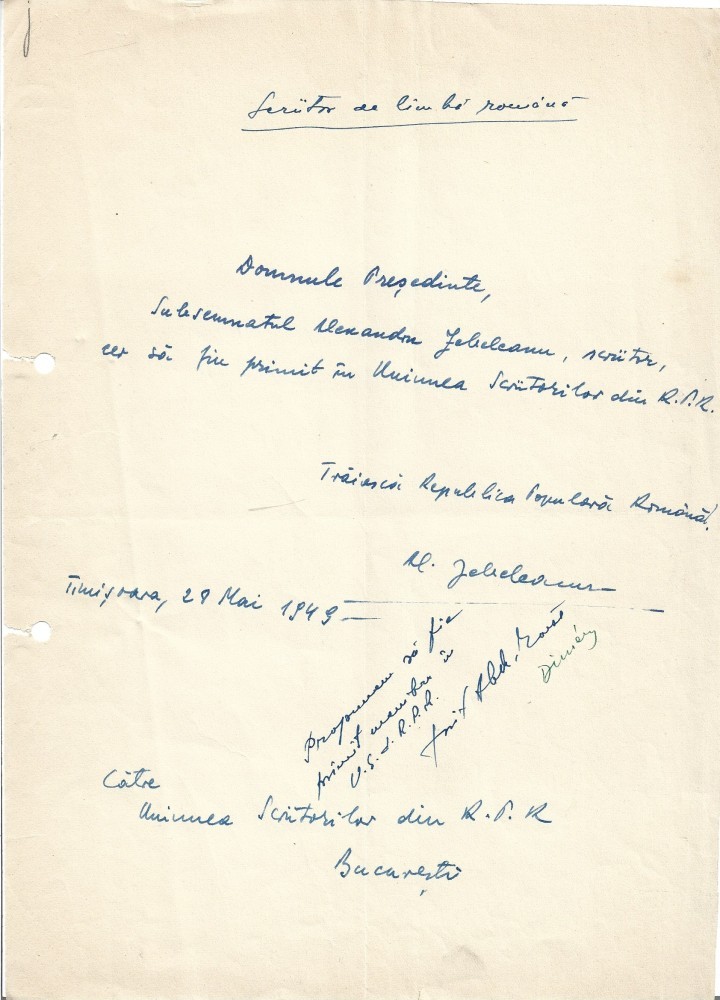 Scriitor de limbă română
Domnule Președinte,
Subsemnatul Alexandru Jebeleanu, scriitor,
cer să fiu primit în Uniunea Scriitorilor din R.P.R.
Trăiască Republica Populară Română!
Al. Jebeleanu
Timișoara, 28 Mai 1949
Propunem să fie
primit membru în
U.S. d. R.P.R.
Către
Uniunea Scriitorilor din R.P.R
București